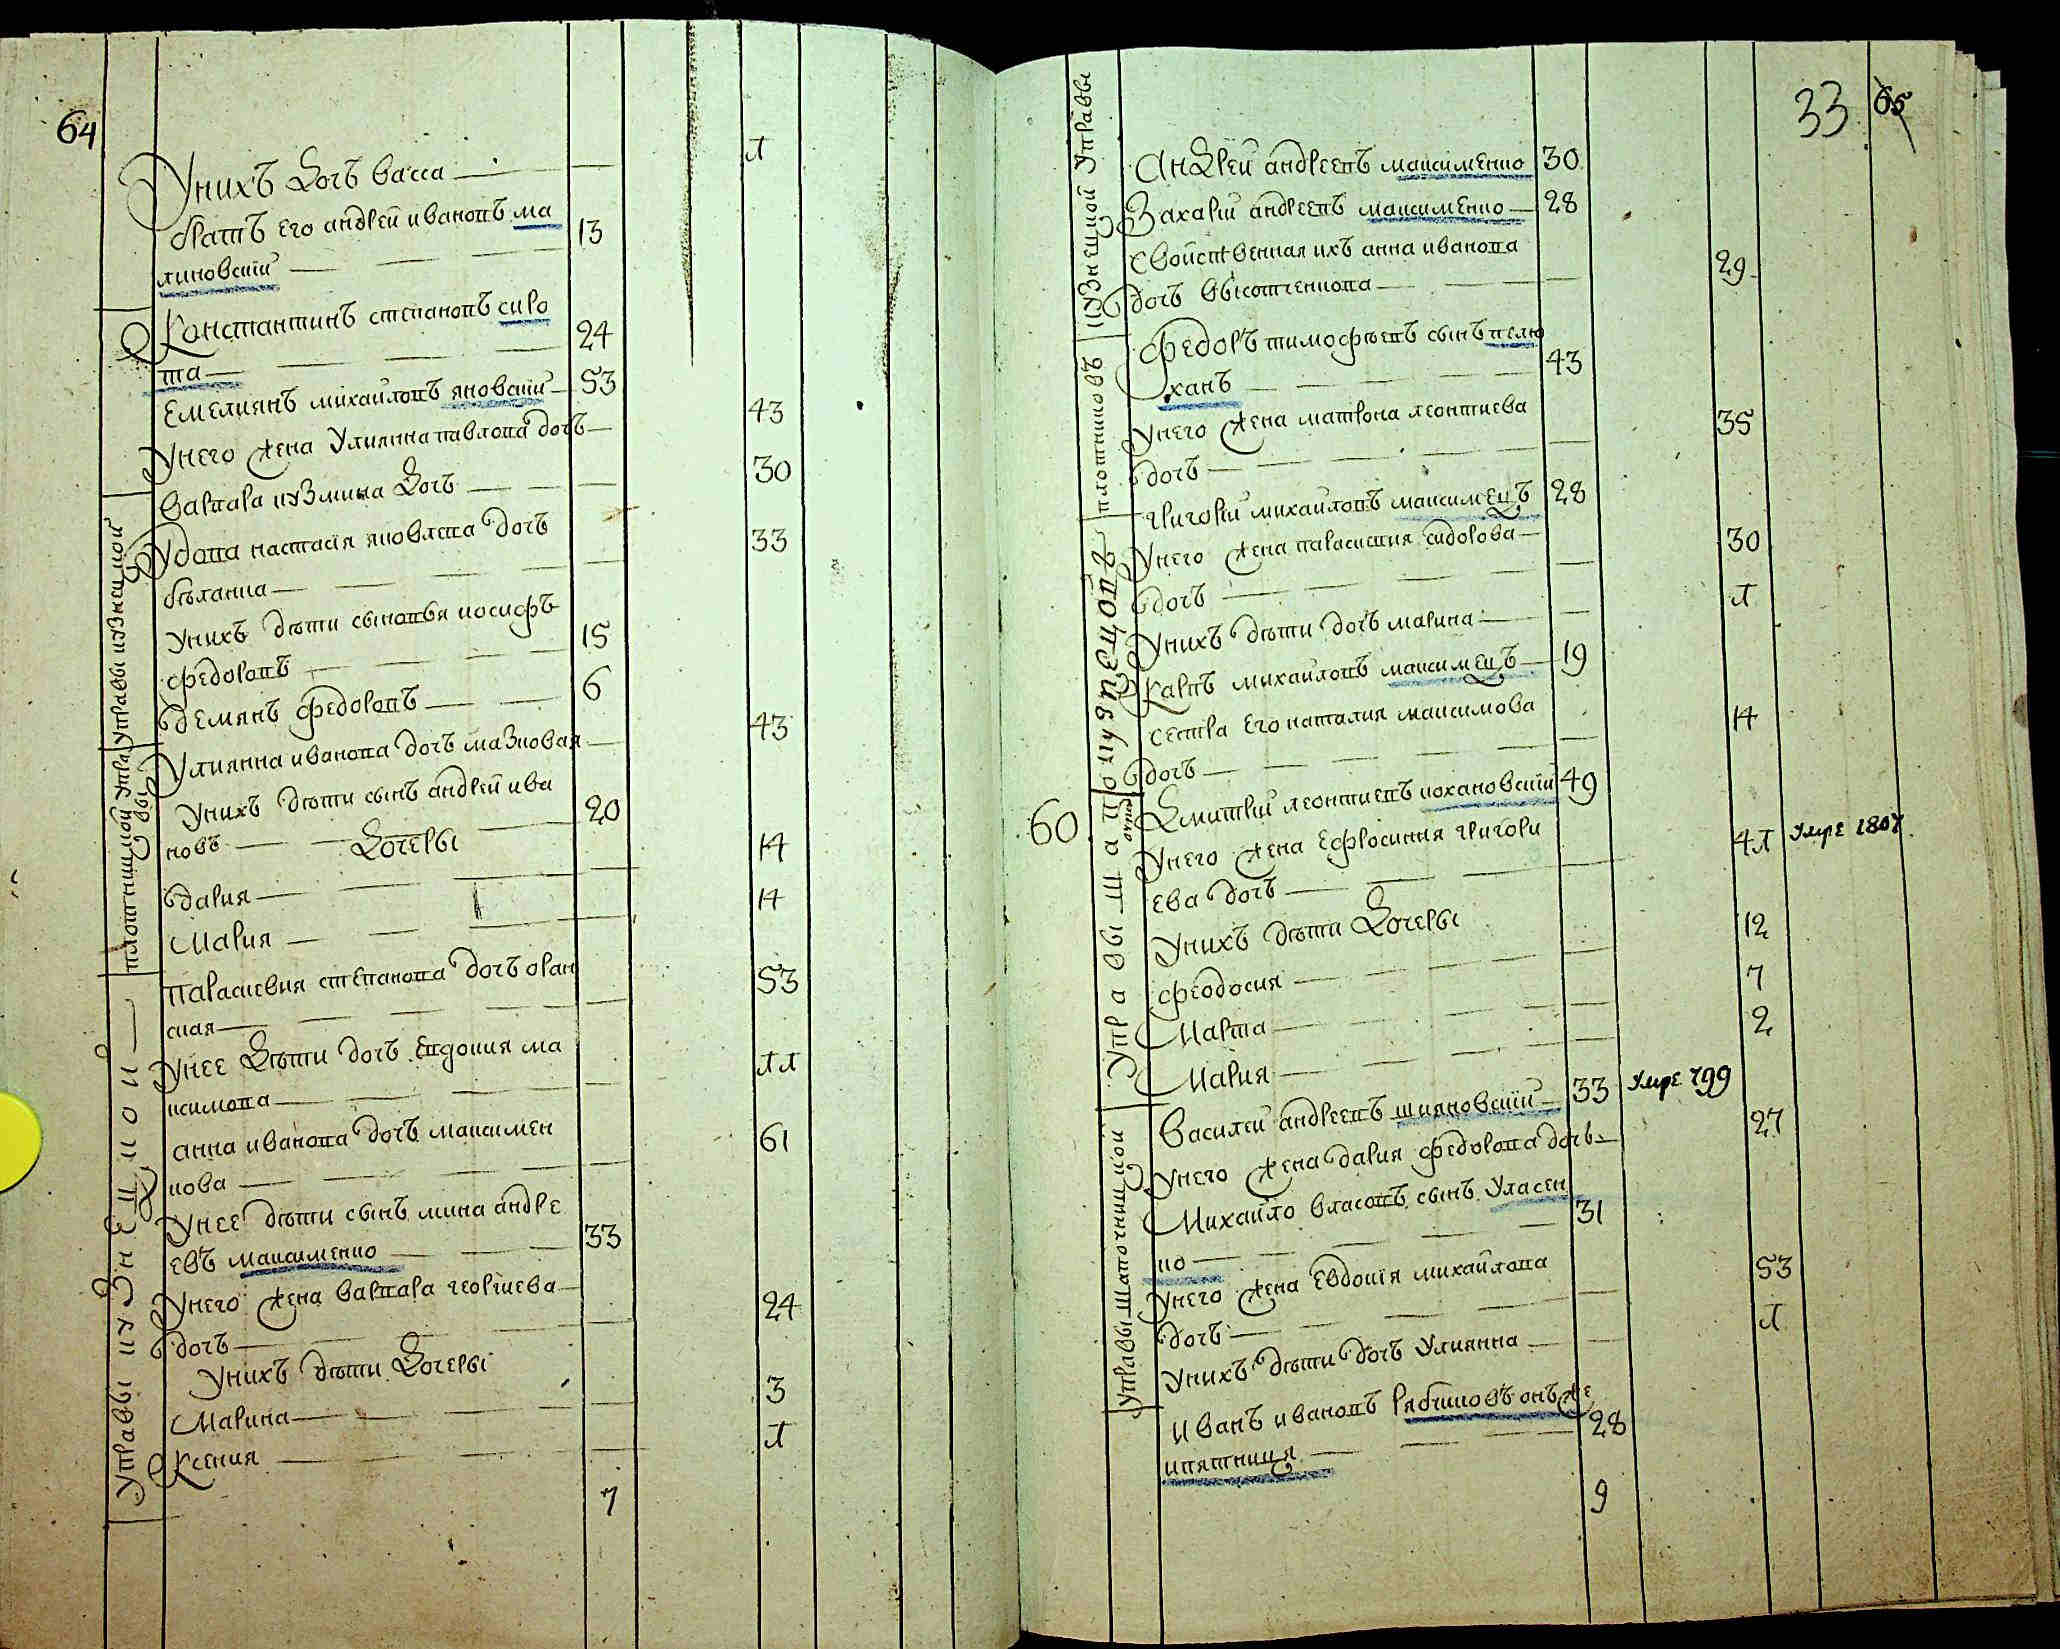 64
Унихъ дочъ васса — 1
братъ его андрей ивановъ ма
13
линовскии
Константинъ степановъ сиро
24
та
Емелиянъ михайловъ яновский 53
Унего жена Улиянна павлова дочъ 43
варвара кузмина дочъ 30
Удова настасія яковлева дочъ 33
бѣланка
Унихъ дѣти сыновья иосифъ
15
федоровъ
демянъ федоровъ 6
Улиянна иванова дочъ мазновая 43
Унихъ дѣти сынъ андрей ива
20
новъ дочеры
дария 14
Мария 14
Параскевия степанова дочъ оран
53
ская
Унее дѣти дочъ Евдокия ма
11
ксимова
анна иванова дочъ максимен
61
кова
Унее дѣти сынъ мина андре
33
евъ максименко
Унего жена варвара георгиева 24
дочъ
Унихъ дѣти дочеры
Марина 3
Ксения 1
7
Управы кузнецкой
плотницкой управы
Управы кузнецкой
33 65
Андрей андреевъ максименко 30
Захарий андреевъ максименко 28
свойственная ихъ анна иванова
29
дочъ
Федоръ тимофѣевъ сынъ пелю
43
ханъ
Унего жена матрона леонтиева 35
дочъ
Григорий михайловъ максимецъ 28
Унего жена параскивия сидорова 30
дочъ
Унихъ дѣти дочъ марина 1
Карпъ михайловъ максимецъ 19
сестра его наталия максимова 14
дочъ
60
Дмитрий леонтиевъ кохановский 49
Унего жена Ефросиния григори
41 умре 1807
ева дочъ
Унихъ дѣти дочеры
феодосия 12
Марта 7
Мария 2
Василей андреевъ шияновский 33 умре 799
Унего жена дария федорова дочъ 27
Михайло власовъ сынъ Уласен
31
ко
Унего жена Евдокія михайлова 53
дочъ
Унихъ дѣти дочъ Улиянна 1
Иванъ ивановъ рябчковъ онъ же
28
ипятница
9
кузнецкой управы
плотниковъ
кузнецовъ
Управы шапо
чной
Управы шапочницкой